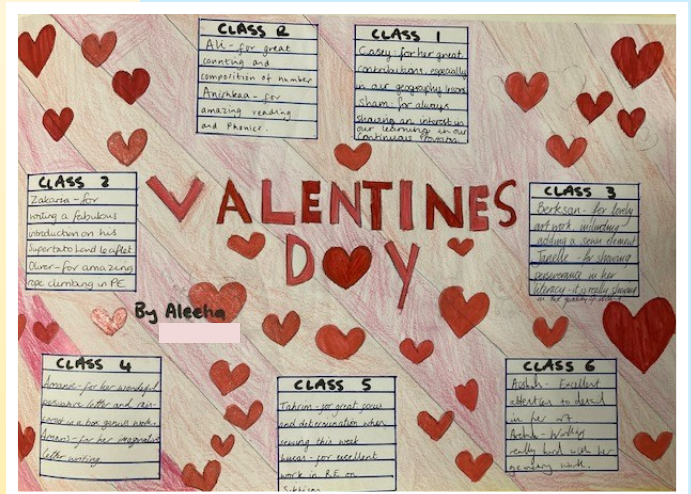 CLASS R
Ali - for great
counting and
composition of number
Anishkaa - for
amazing reading
and Phonics.
CLASS 1
Casey - for her great
contributions, especially
in our geography lessons
for always
showing an interest in
our learning in our
Continuous Provision
CLASS 2
Zakaria - for
writing a fabulous
introduction on his
Supertato hand leaflet
Oliver - for amazing
rope climbing in PE
VALENTINES
DAY
CLASS 3
Berksan - for lovely
art work, including
adding a sewn element
Janelle - for showing
perseverance in her
literacy - it is really showing
in the quality of
By Aleeha
CLASS 4
Amanie - for her wonderful
persuasive letter and
work.
for her imaginative
letter writing
CLASS 5
Tahrim - for great focus
and determination when
sewing this week
Lucas - for excellent
work in R.E. on
Sikhism
CLASS 6
Excellent
attention to detail
in her art
Working
really hard with her
geometry work.